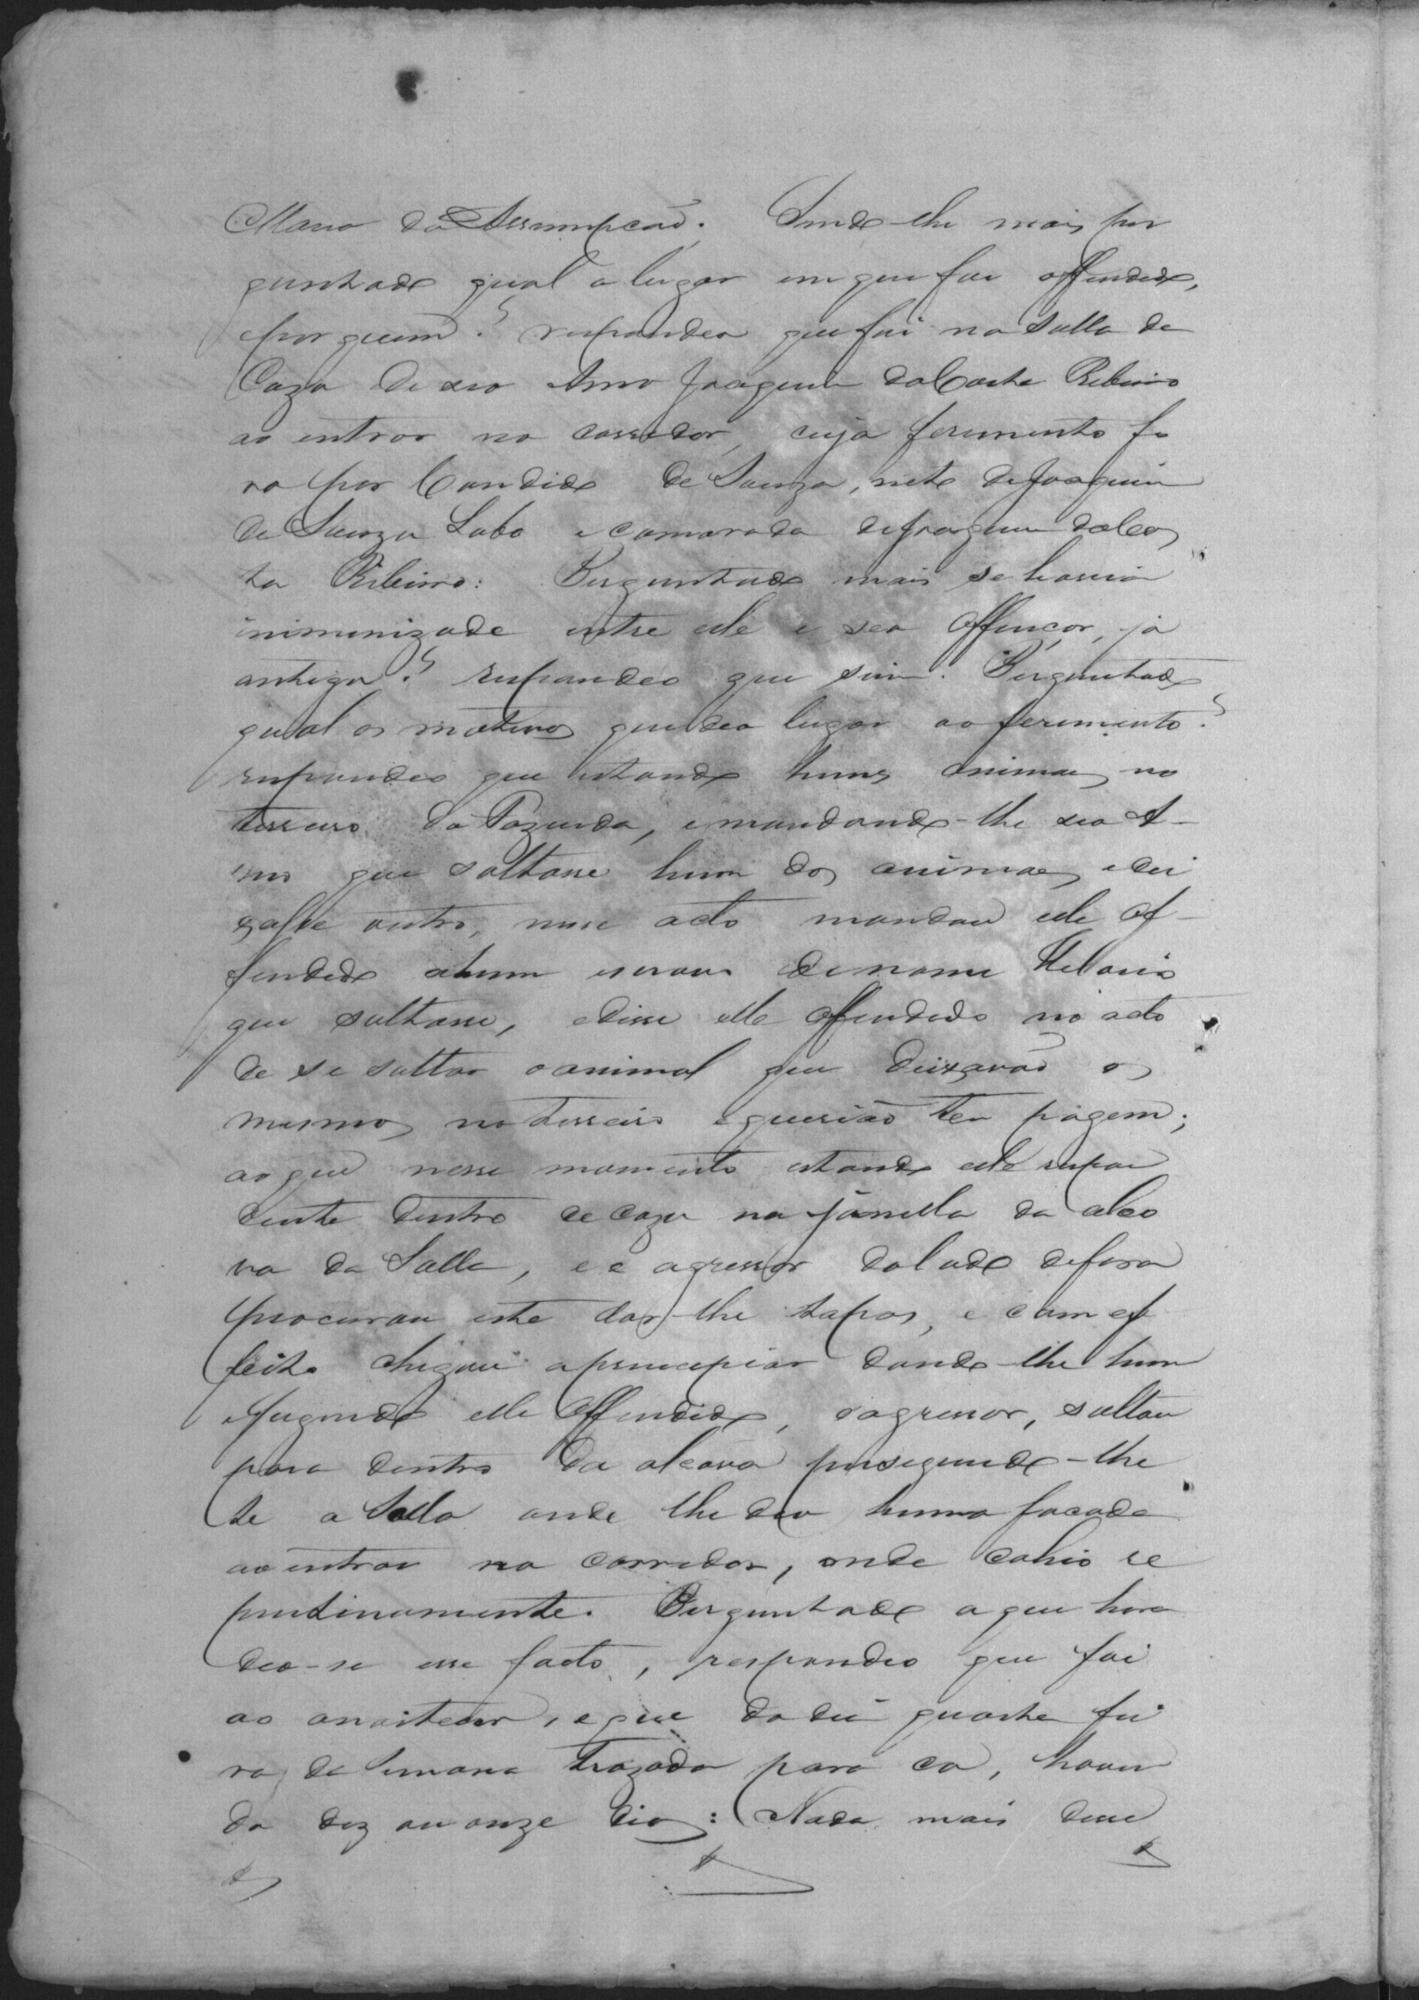 Maria da Assumpção. Sendo-lhe mais per
guntado qual o lugar em que foi offendido,
e por quem? respondeo que foi na Salla da
Caza de seo Amo Joaquim da Costa Ribeiro
ao entrar no corredor, cujo ferimento fo
ra por Candido de Souza, neto de Joaquim
de Souza Lobo e camarada de Joaquim da Cos
ta Ribeiro: Perguntado mais se havia
inimizade entre elle e seo offençor, já
antiga? respondeo que sim. Perguntado
qual os motivos que deo lugar ao ferimento?
respondeo que estando huns animaes no
terreiro da Fazenda, e mandando-lhe seo A-
mo que soltasse hum dos animaes e dei
xasse outro, nesse acto mandou elle of-
fendido a hum escravo de nome Hilario
que soltasse, e disse elle offendido no acto
de se soltar o animal que deixavão os
mesmos no terreiro e querião ter pagem;
ao que nesse momento estando elle respon
dente dentro de caza na janella da alco
va da Salla, e o agressor do lado de fora
procurou este dar-lhe tapas, e com ef
feito chegou a principiar dando-lhe hum
e fugindo elle offendido, o agressor, saltou
para dentro da alcova perseguindo-lhe
te a Salla onde lhe deo huma facada
ao entrar no corredor, onde cahio re
pentinamente. Perguntado a que hora
deo-se esse facto, respondeo que foi
ao anoitecer, e que do dia quarta fei
ra da Semana trazada para ca, haven
do dez ou onze dias: Nada mais disse